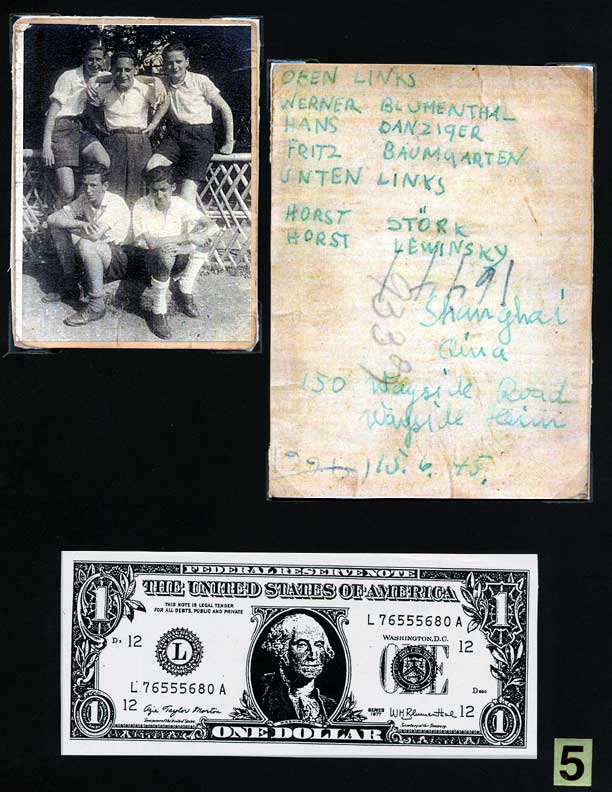 OBEN LINKS
WERNER BLUMENTHAL
HANS DANZIGER
FRITZ BAUMGARTEN
UNTEN LINKS
HORST STÖRK
HORST LEWINSKY
Shanghai
150 Wayside Road
Wayside Heim
15. 6. 45.
FEDERAL RESERVE NOTE
THE UNITED STATES OF AMERICA
THIS NOTE IS LEGAL TENDER
FOR ALL DEBTS, PUBLIC AND PRIVATE
L 76555680 A
WASHINGTON, D.C.
12
12
L
L 76555680 A
12
12
Azie Taylor Morton
SERIES
1977
W M Blumenthal
Treasurer of the United States
Secretary of the Treasury
1
1
1
1
ONE
ONE DOLLAR
5